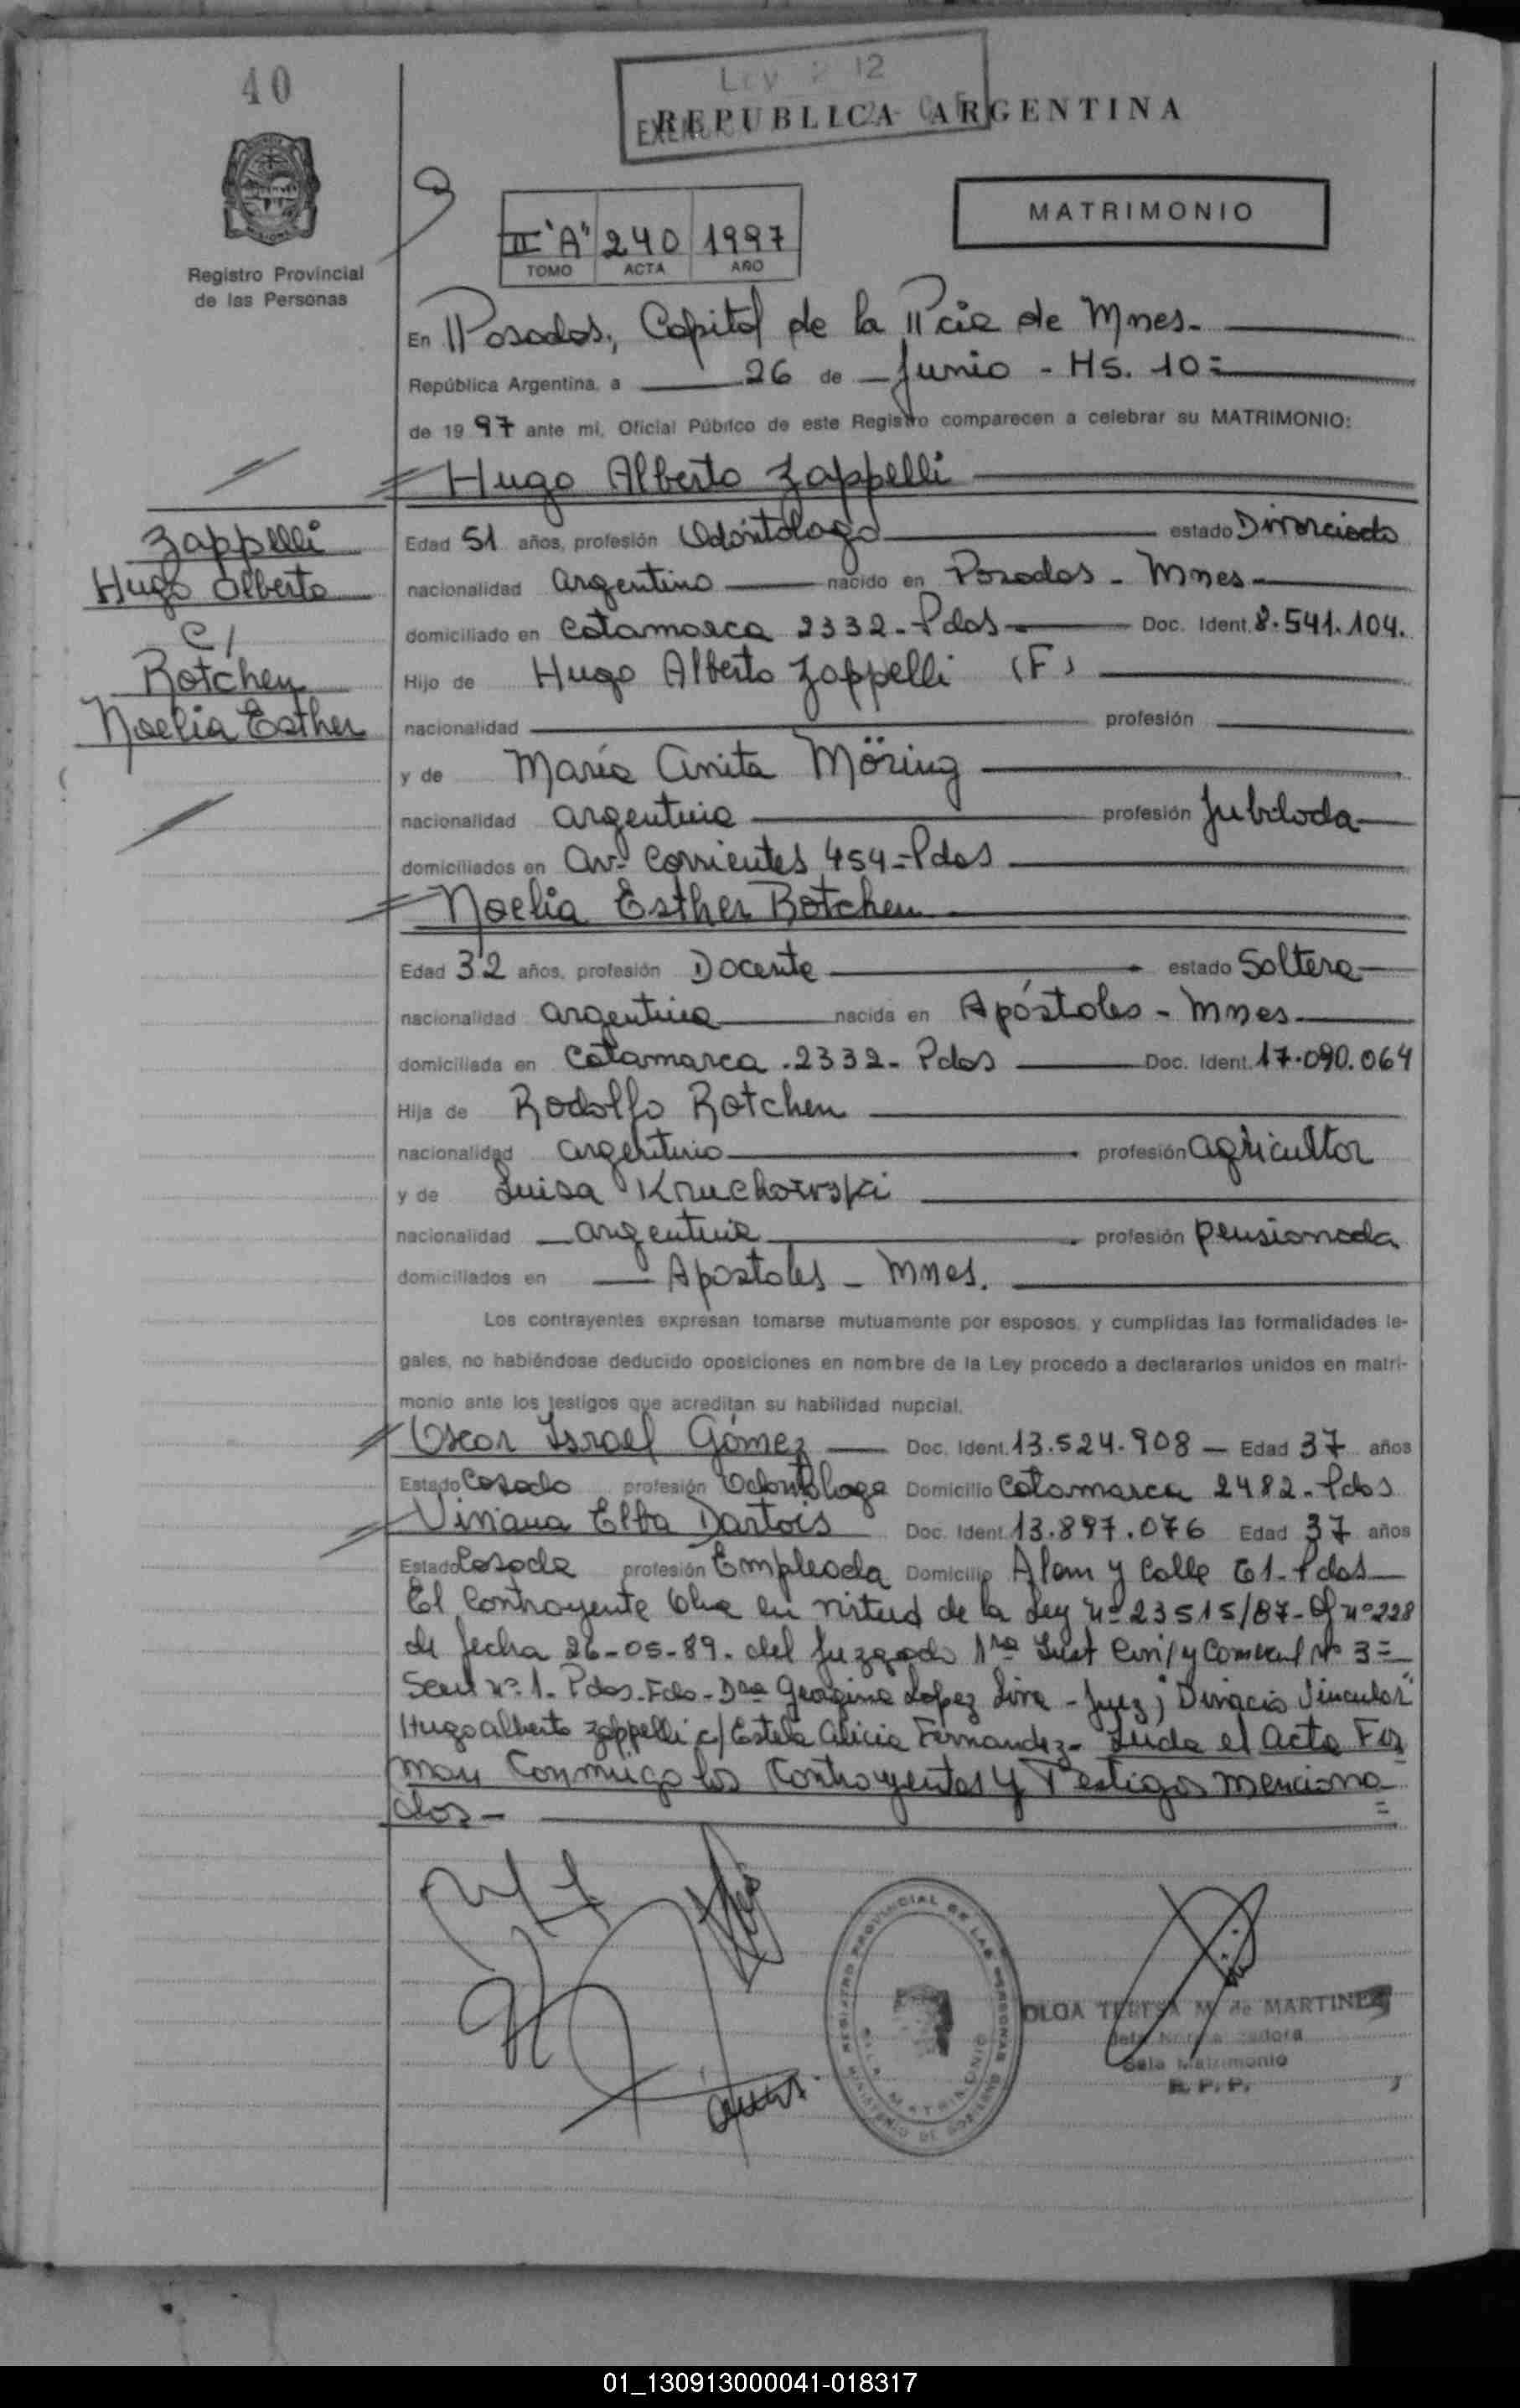 40
REPUBLICA ARGENTINA
MATRIMONIO
II "A" 240 1997
TOMO ACTA AÑO
Registro Provincial
de las Personas
En Posadas, Capital de la Pcia de Mnes-
República Argentina, a 26 de Junio - Hs. 10=
de 1997 ante mi, Oficial Público de este Registro comparecen a celebrar su MATRIMONIO:
Hugo Alberto Zappelli
Zappelli
Hugo Alberto
C/
Rotchen
Noelia Esther
Edad 51 años, profesión Odontólogo estado Divorciado
nacionalidad argentino nacido en Posadas - Mnes-
domiciliado en Catamarca 2332- Pdas Doc. Ident. 8.541.104.
Hijo de Hugo Alberto Zappelli (F)
nacionalidad profesión
y de María Anita Möring
nacionalidad argentina profesión Jubilada
domiciliados en Av- Corrientes 454=Pdas
Noelia Esther Rotchen
Edad 32 años, profesión Docente estado Soltera
nacionalidad argentina nacida en Apóstoles - Mnes-
domiciliada en Catamarca -2332- Pdas Doc. Ident. 17.090.064
Hija de Rodolfo Rotchen
nacionalidad argentino profesión agricultor
y de Luisa Kruchowski
nacionalidad argentina profesión pensionada
domiciliados en Apostoles - Mnes.
Los contrayentes expresan tomarse mutuamente por esposos, y cumplidas las formalidades le-
gales, no habiéndose deducido oposiciones en nombre de la Ley procedo a declararlos unidos en matri-
monio ante los testigos que acreditan su habilidad nupcial.
Oscar Israel Gómez Doc. Ident. 13.524.908 - Edad 37 años
Estado Casado profesión Odontólogo Domicilio Catamarca 2482- Pdas
Viviana Elba Dartois Doc. Ident. 13.897.076 Edad 37 años
Estado Casada profesión Empleada Domicilio Alem y Calle 61- Pdas
El Contrayente en virtud de la Ley nº 23515/87- Of nº 228
de fecha 26-05-89. del Juzgado 1ra Inst Civil y Comercial Nº 3=
Secret nº 1- Pdas- Fdo- Dra Georgina Lopez Liva - Juez;
Hugo Alberto Zappelli c/ Estela Alicia Fernandez- Leida el Acta Fir
man Conmigo los Contrayentes y Testigos menciona
dos-
REGISTRO PROVINCIAL DE LAS PERSONAS
SALA MATRIMONIO
MINISTERIO DE GOBIERNO
OLGA TERESA M. de MARTINEZ
Sala Matrimonio
R. P. P.
01_130913000041-018317